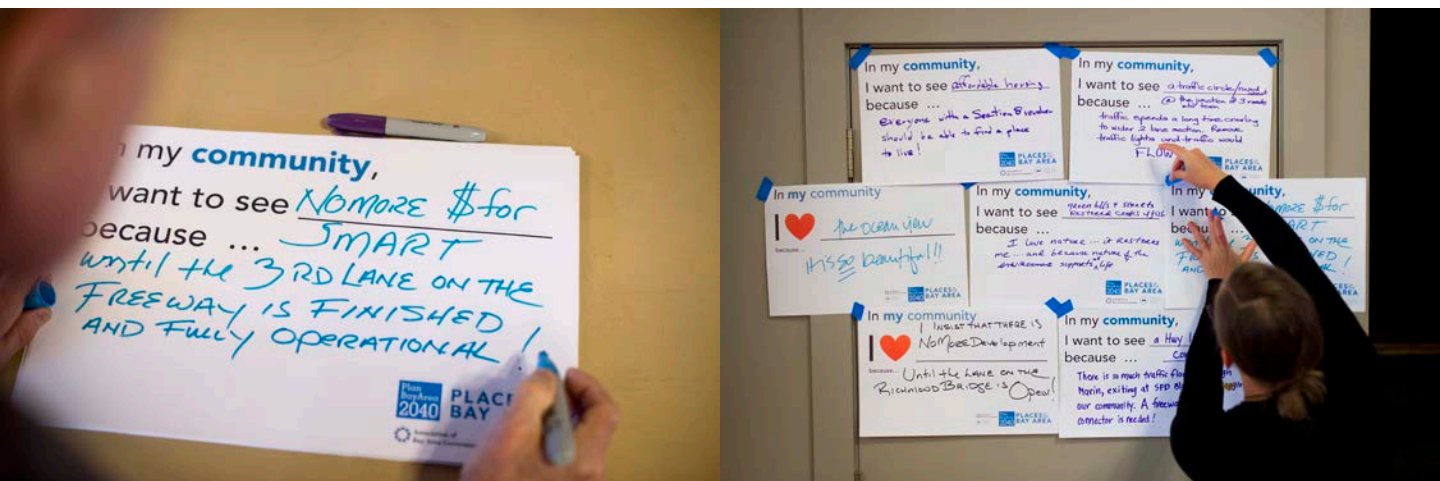 my community,
want to see NO MORE $ for
because ... SMART
until the 3RD LANE ON THE
FREEWAY IS FINISHED
AND FULLY OPERATIONAL !
Plan
BayArea
2040
PLACE
BAY
Association of
Bay Area Governments
In my community,
I want to see affordable housing
because ...
everyone with a Section 8 voucher
should be able to find a place
to live!
PLACES
BAY AREA
In my community,
I want to see a traffic circle/
because ... @ the junction of 3 roads
traffic spends a long time crawling
to 2 lane section. Remove
traffic lights and traffic would
FLOW
PLACES
BAY AREA
In my community
I ♥ the ocean view
because...
it is so beautiful!!
BAY AREA
In my community,
I want to see green hills + streets
because ... restored creeks
I love nature ... it restores
me ... and because nature & the
environment supports life
PLACES
BAY AREA
In my community,
I want to see MORE $ for
ART
ON THE
!
AREA
In my community
I ♥ I INSIST THAT THERE IS
No More Development
because... Until the LANE ON THE
RICHMOND BRIDGE IS Open!
PLACES
BAY AREA
In my community,
I want to see a Hwy
because ...
There is so much traffic
Marin, exiting at SFD
our community. A freeway
connector is needed!